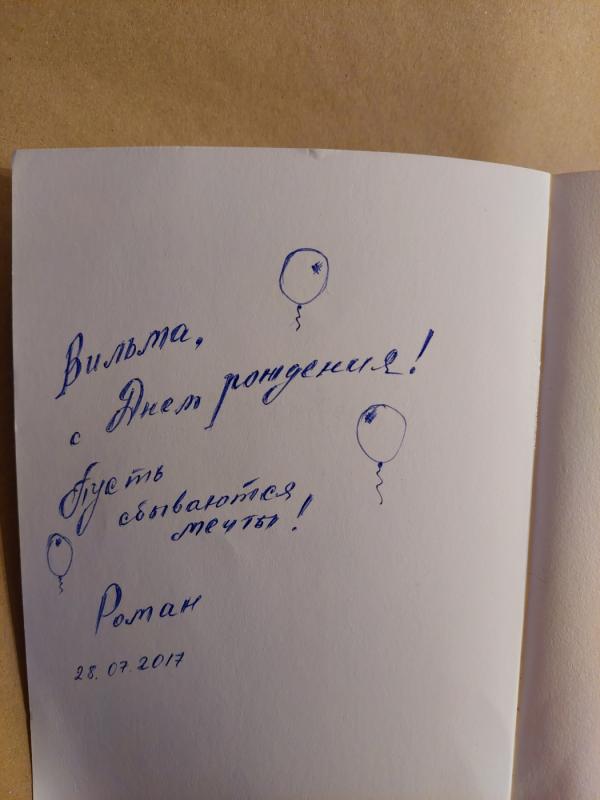 Вильма,
с Днем рождения!
Пусть
сбываются
мечты!
Роман
28.07.2017